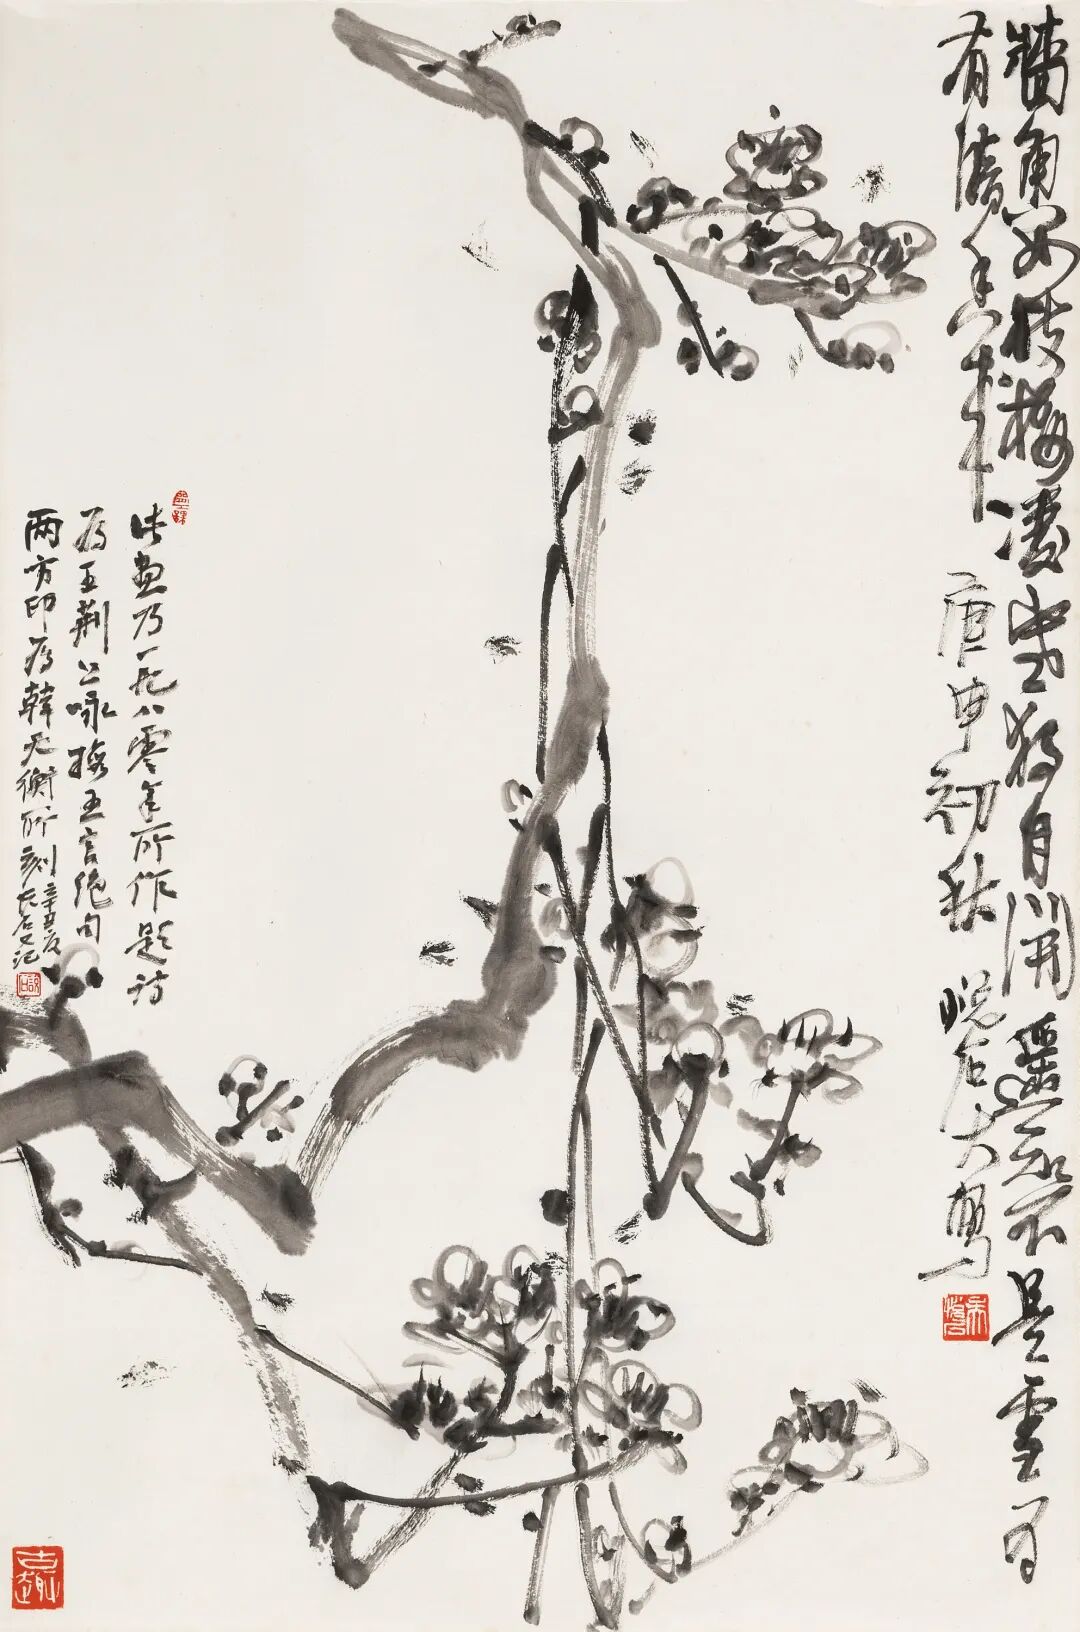 牆角数枝梅凌寒独自開遥知不是雪为
有暗香来 庚申初秋
此画乃一九八零年所作题诗
为王荆公咏梅五言绝句
两方印为韩天衡所刻 辛丑夏 又记